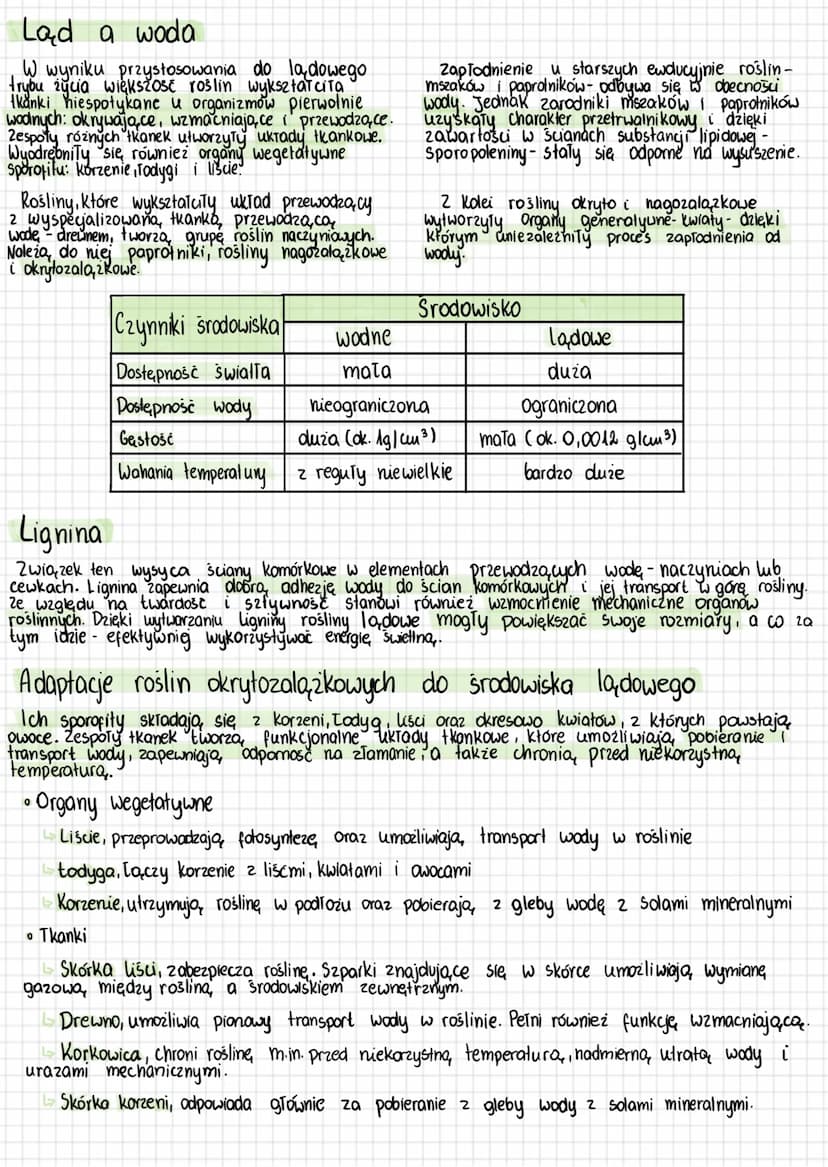 Ląd a woda
W wyniku przystosowania do lądowego
trybu życia większość roślin wykształciła
tkanki niespotykane u organizmów pierwotnie
wodnych: okrywające, wzmacniające i przewodzące.
Zespoły różnych tkanek utworzyły układy tkankowe.
Wyodrębniły się również organy wegetatywne
sporofitu: korzenie, łodygi i liście.
Rośliny, które wykształciły układ przewodzący
z wyspecjalizowaną tkanką przewodzącą
wodę - drewnem, tworzą grupę roślin naczyniowych.
Należą do niej paprotniki, rośliny nagozalążkowe
i okrytozalążkowe.
Zapłodnienie u starszych ewolucyjnie roślin -
mszaków i paprotników - odbywa się w obecności
wody. Jednak zarodniki mszaków i paprotników
uzyskały charakter przetrwalnikowy i dzięki
zawartości w ścianach substancji lipidowej -
sporopoleniny - stały się odporne na wysuszenie.
Z kolei rośliny okryto i nagozalążkowe
wytworzyły organy generatywne - kwiaty - dzięki
którym uniezależniły proces zapłodnienia od
wody.
Czynniki środowiska Środowisko
wodne lądowe
Dostępność światła mała duża
Dostępność wody nieograniczona ograniczona
Gęstość duża (ok. 1g/cm³) mała (ok. 0,0012 g/cm³)
Wahania temperatury z reguły niewielkie bardzo duże
Lignina
Związek ten wysyca ściany komórkowe w elementach przewodzących wodę - naczyniach lub
cewkach. Lignina zapewnia dobrą adhezję wody do ścian komórkowych i jej transport w górę rośliny.
Ze względu na twardość i sztywność stanowi również wzmocnienie mechaniczne organów
roślinnych. Dzięki wytwarzaniu ligniny rośliny lądowe mogły powiększać swoje rozmiary, a co za
tym idzie - efektywniej wykorzystywać energię świetlną.
Adaptacje roślin okrytozalążkowych do środowiska lądowego
Ich sporofity składają się z korzeni, łodyg, liści oraz okresowo kwiatów, z których powstają
owoce. Zespoły tkanek tworzą funkcjonalne układy tkankowe, które umożliwiają pobieranie i
transport wody, zapewniają odporność na złamanie, a także chronią przed niekorzystną
temperaturą.
• Organy wegetatywne
↳ Liście, przeprowadzają fotosyntezę oraz umożliwiają transport wody w roślinie
↳ Łodyga, łączy korzenie z liśćmi, kwiatami i owocami
↳ Korzenie, utrzymują roślinę w podłożu oraz pobierają z gleby wodę z solami mineralnymi
• Tkanki
↳ Skórka liści, zabezpiecza roślinę. Szparki znajdujące się w skórce umożliwiają wymianę
gazową między rośliną a środowiskiem zewnętrznym.
↳ Drewno, umożliwia pionowy transport wody w roślinie. Pełni również funkcję wzmacniającą.
↳ Korkowica, chroni roślinę m.in. przed niekorzystną temperaturą, nadmierną utratą wody i
urazami mechanicznymi.
↳ Skórka korzeni, odpowiada głównie za pobieranie z gleby wody z solami mineralnymi.